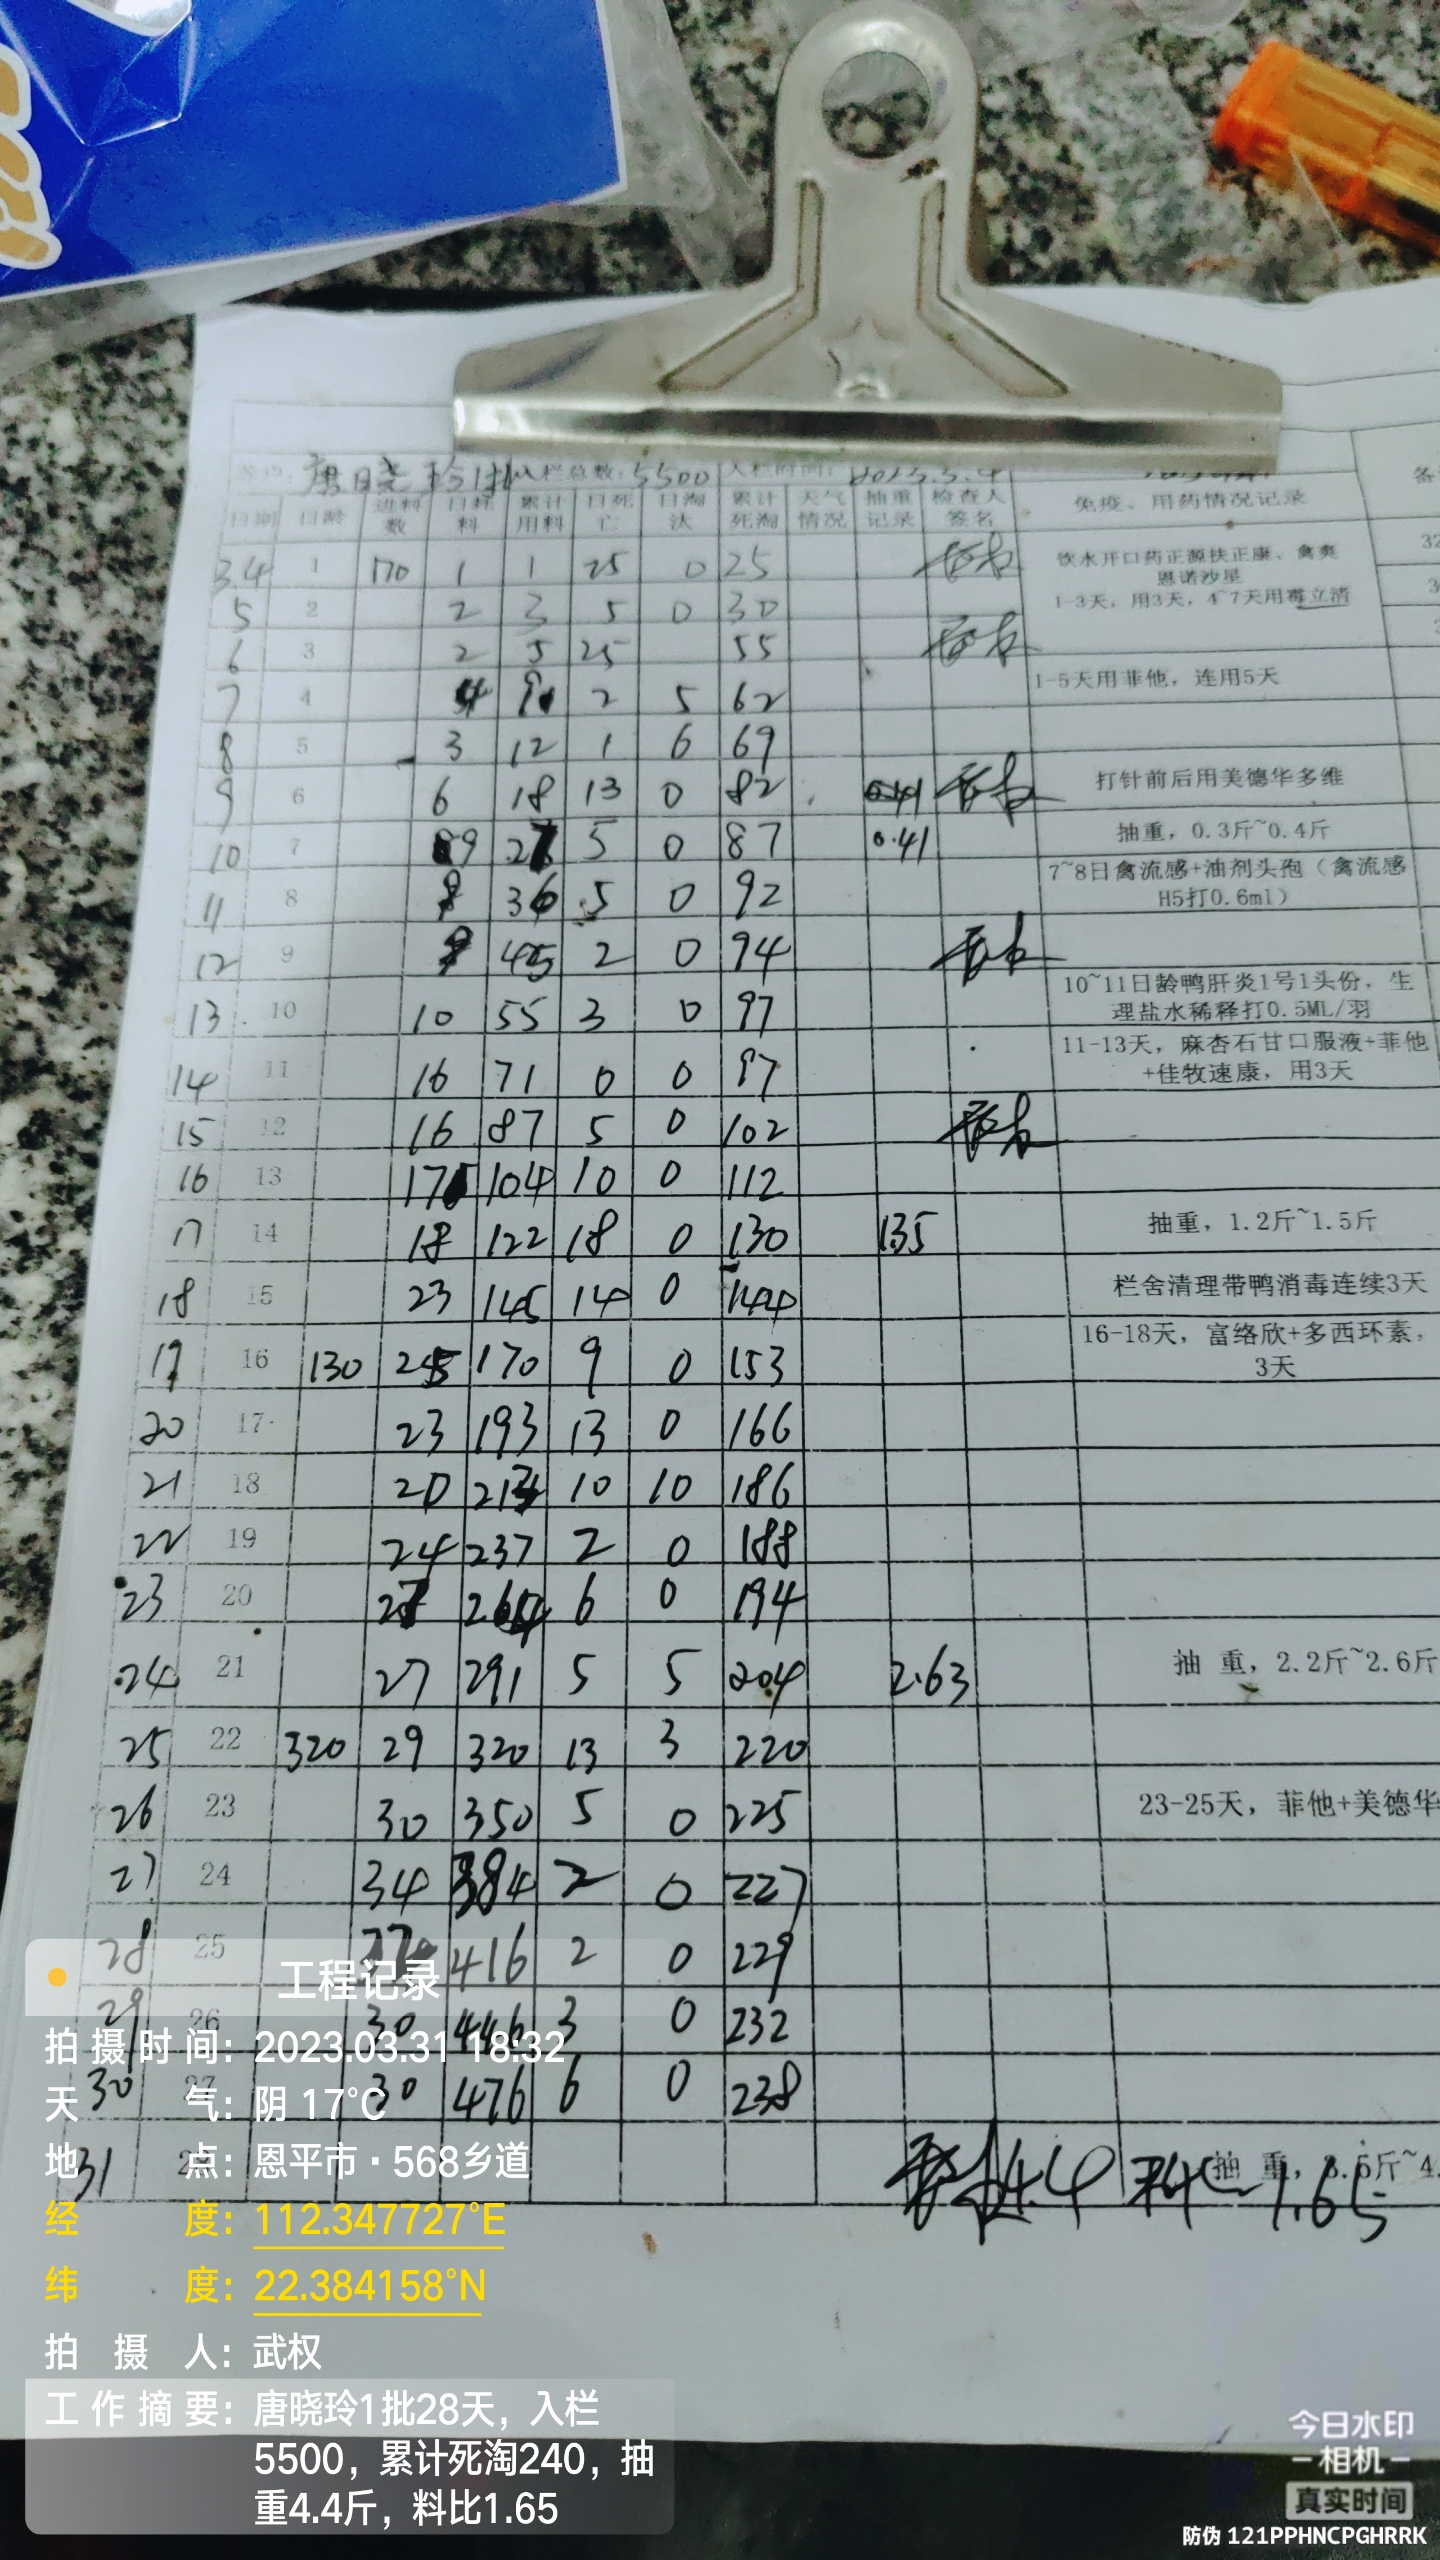 唐晓玲1批 入栏总数:5500 入栏时间: 2023.3.4
日期 日龄 进料数 日耗料 累计用料 日死亡 日淘汰 累计死淘 天气情况 抽重记录 检查人签名 免疫、用药情况记录
3.4 1 170 1 1 25 0 25 饮水开口药正源扶正康、禽爽
恩诺沙星
1-3天，用3天，4~7天用毒立清
5 2 2 3 5 0 30
6 3 2 5 25 55
7 4 4 9 2 5 62 1-5天用菲他，连用5天
8 5 3 12 1 6 69
9 6 6 18 13 0 82 打针前后用美德华多维
10 7 9 27 5 0 87 0.41 抽重，0.3斤~0.4斤
11 8 36 5 0 92 7~8日禽流感+油剂头孢（禽流感
H5打0.6ml）
12 9 45 2 0 94
13 10 10 55 3 0 97 10~11日龄鸭肝炎1号1头份，生
理盐水稀释打0.5ML/羽
14 11 16 71 0 0 97 11-13天，麻杏石甘口服液+菲他
+佳牧速康，用3天
15 12 16 87 5 0 102
16 13 17 104 10 0 112
17 14 18 122 18 0 130 135 抽重，1.2斤~1.5斤
18 15 23 145 14 0 144 栏舍清理带鸭消毒连续3天
19 16 130 25 170 9 0 153 16-18天，富络欣+多西环素，
3天
20 17 23 193 13 0 166
21 18 20 213 10 10 186
22 19 24 237 2 0 188
23 20 27 264 6 0 194
24 21 27 291 5 5 204 2.63 抽 重，2.2斤~2.6斤
25 22 320 29 320 13 3 220
26 23 30 350 5 0 225 23-25天，菲他+美德华
27 24 34 384 2 0 227
28 25 416 2 0 229
29 26 30 446 3 0 232
30 27 30 476 6 0 238
31 4.4 料比1.65 抽 重，
工程记录
拍摄时间：2023.03.31 18:32
天气：阴 17℃
地点：恩平市·568乡道
经度：112.347727°E
纬度：22.384158°N
拍摄人：武权
工作摘要：唐晓玲1批28天，入栏
5500，累计死淘240，抽
重4.4斤，料比1.65
今日水印
相机
真实时间
防伪 121PPHNCPGHRRK